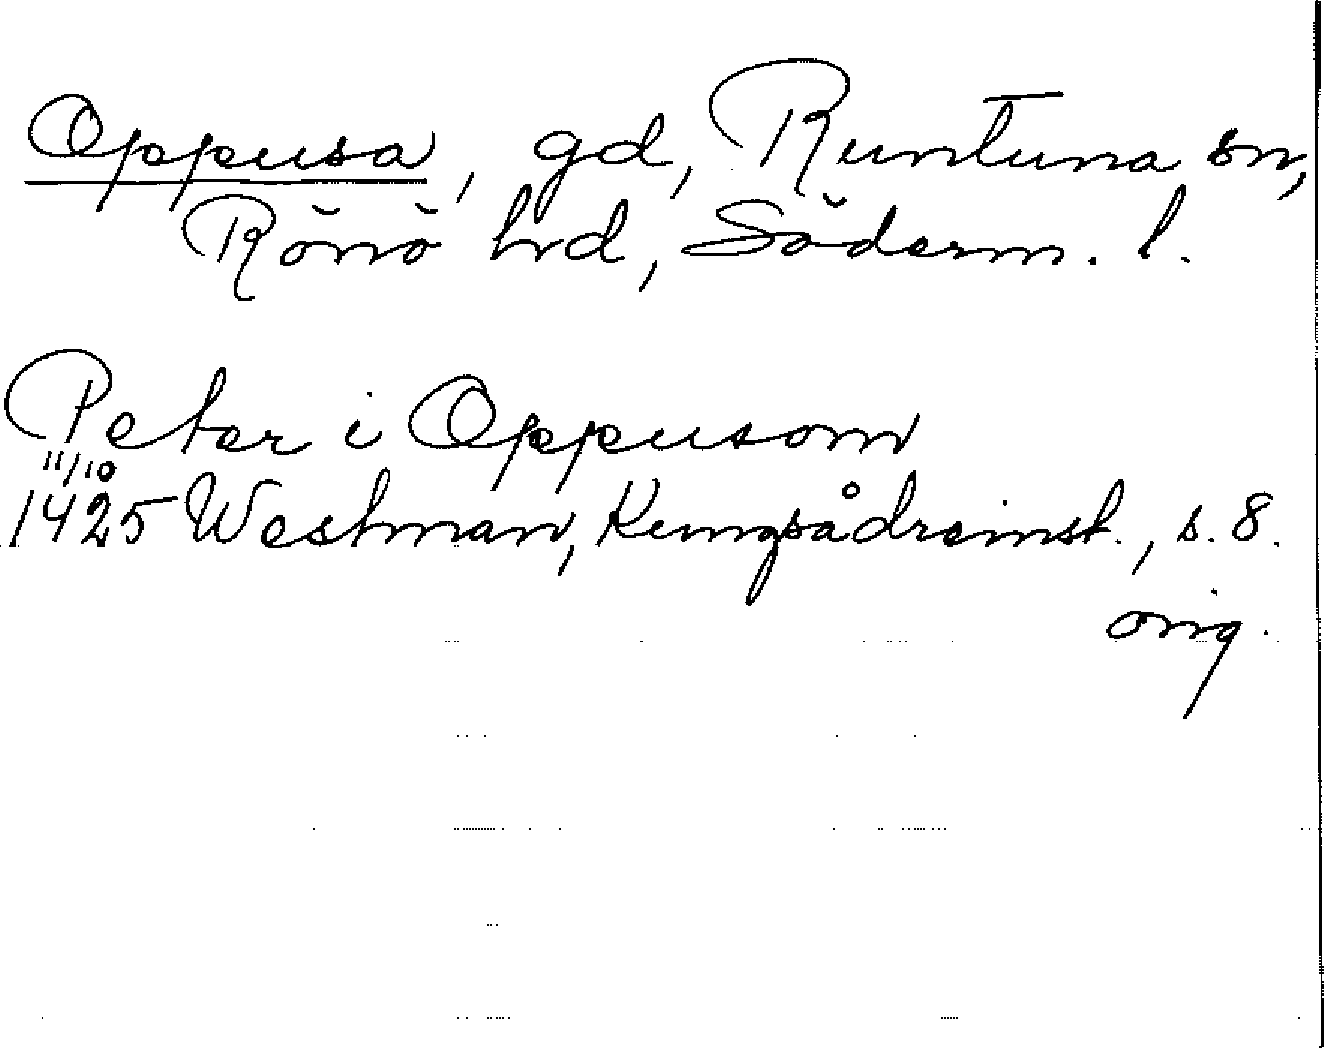 Oppusa, gd, Runtuna sn,
Rönö hrd, Söderm. l.
Peter i Oppusom
11/10
1425 Westman, Kungsådreinst., s. 8.
orig.